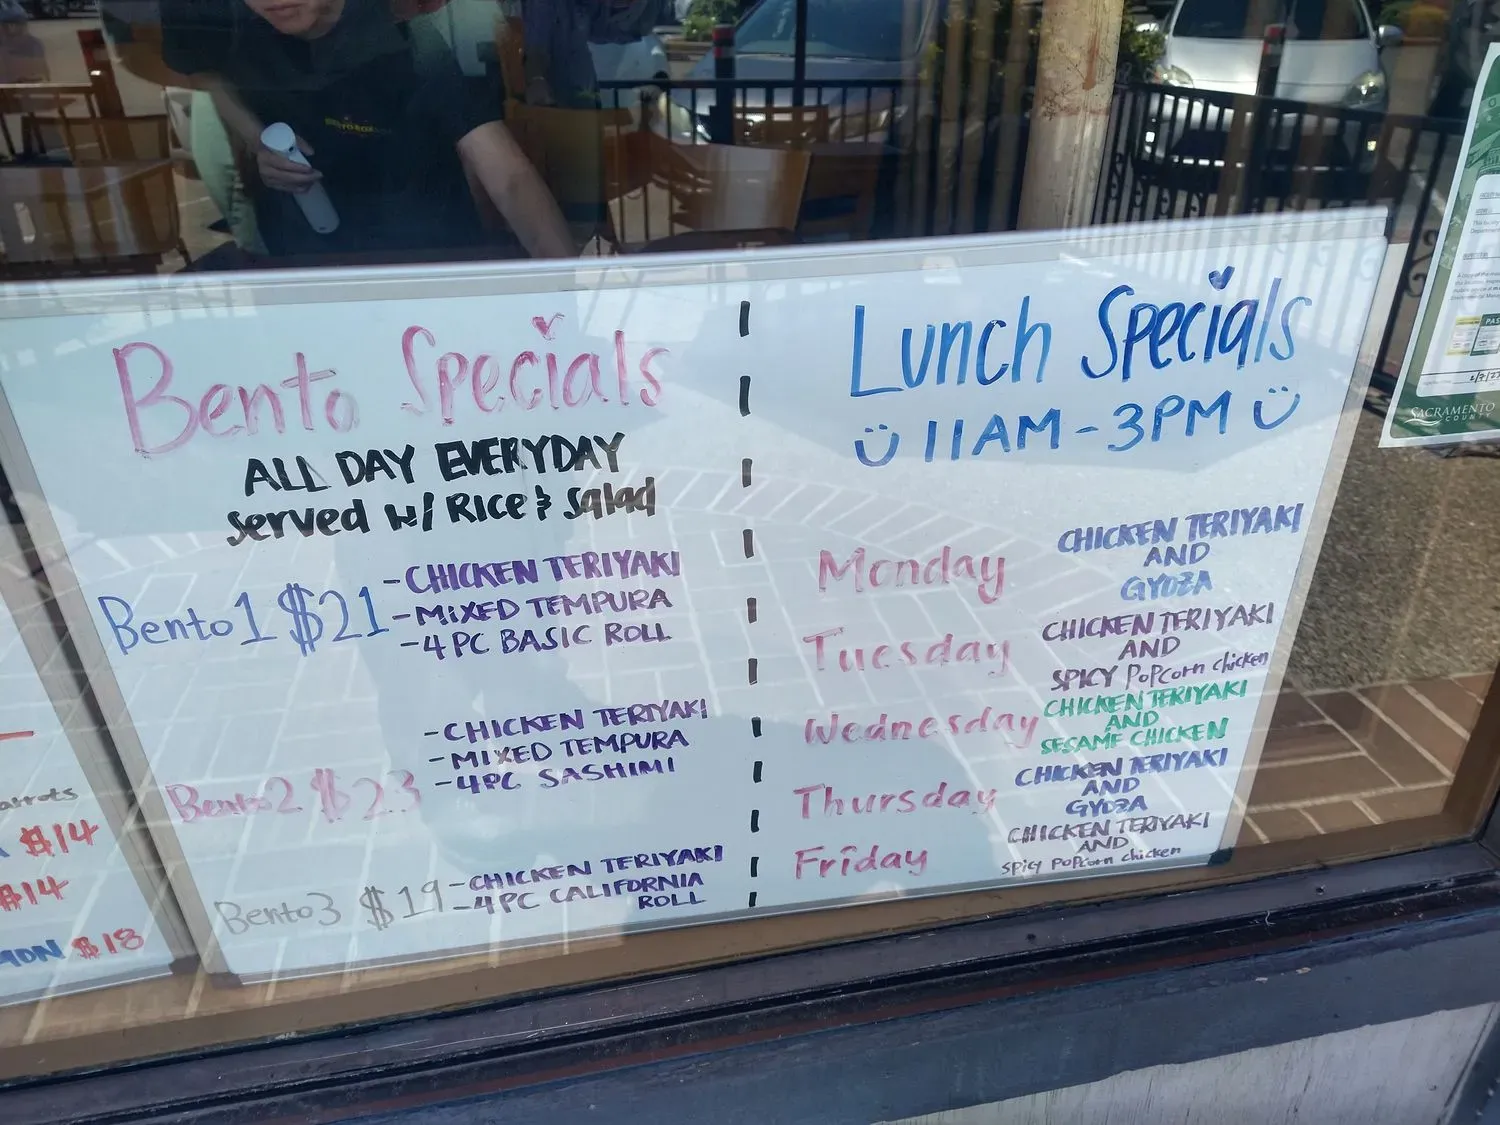 Bento Specials
ALL DAY EVERYDAY
Served w/ Rice & Salad
Bento 1 $21
-CHICKEN TERIYAKI
-MIXED TEMPURA
-4 PC BASIC ROLL
Bento 2 $23
-CHICKEN TERIYAKI
-MIXED TEMPURA
-4PC SASHIMI
Bento 3 $19
-CHICKEN TERIYAKI
-4PC CALIFORNIA
ROLL
Lunch Specials
11AM-3PM
Monday
CHICKEN TERIYAKI
AND
GYOZA
Tuesday
CHICKEN TERIYAKI
AND
SPICY POPCorn chicken
Wednesday
CHICKEN TERIYAKI
AND
SESAME CHICKEN
Thursday
CHICKEN TERIYAKI
AND
GYOZA
Friday
CHICKEN TERIYAKI
AND
SPICY POPCorn chicken
$14
$14
$18
PAS
SACRAMENTO
COUNTY